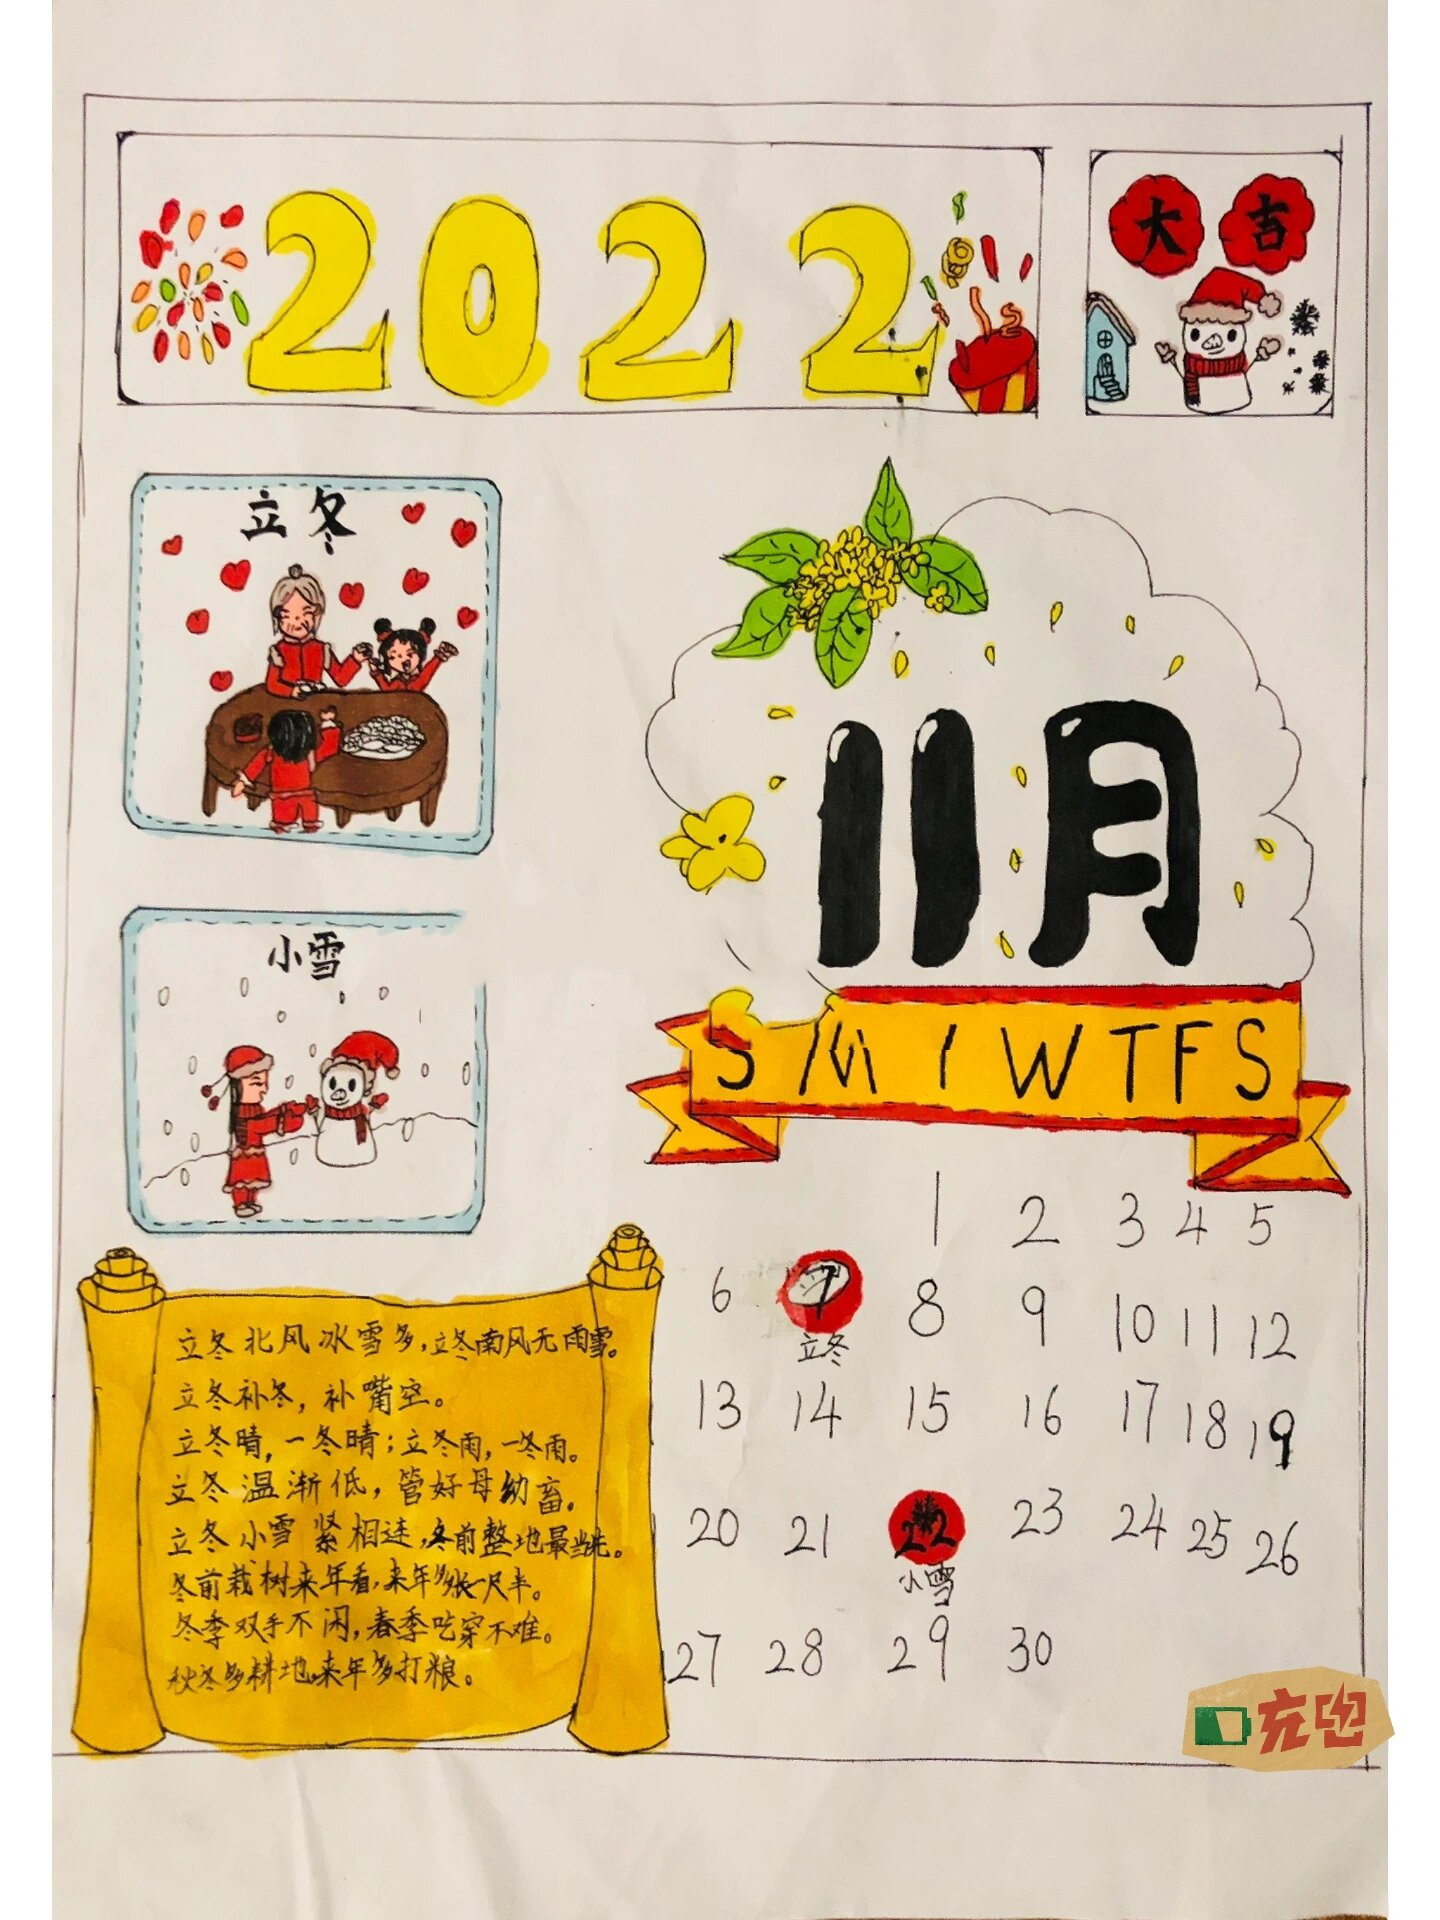 2022
大吉
立冬
11月
小雪
S M T W T F S
1 2 3 4 5
6 7 8 9 10 11 12
立冬
13 14 15 16 17 18 19
20 21 22 23 24 25 26
小雪
27 28 29 30
立冬北风冰雪多，立冬南风无雨雪。
立冬补冬，补嘴空。
立冬晴，一冬晴；立冬雨，一冬雨。
立冬温渐低，管好母幼畜。
立冬小雪紧相连，冬前整地最当先。
冬前栽树来年看，来年多长一尺半。
冬季双手不闲，春季吃穿不难。
秋冬多耕地，来年多打粮。
充电